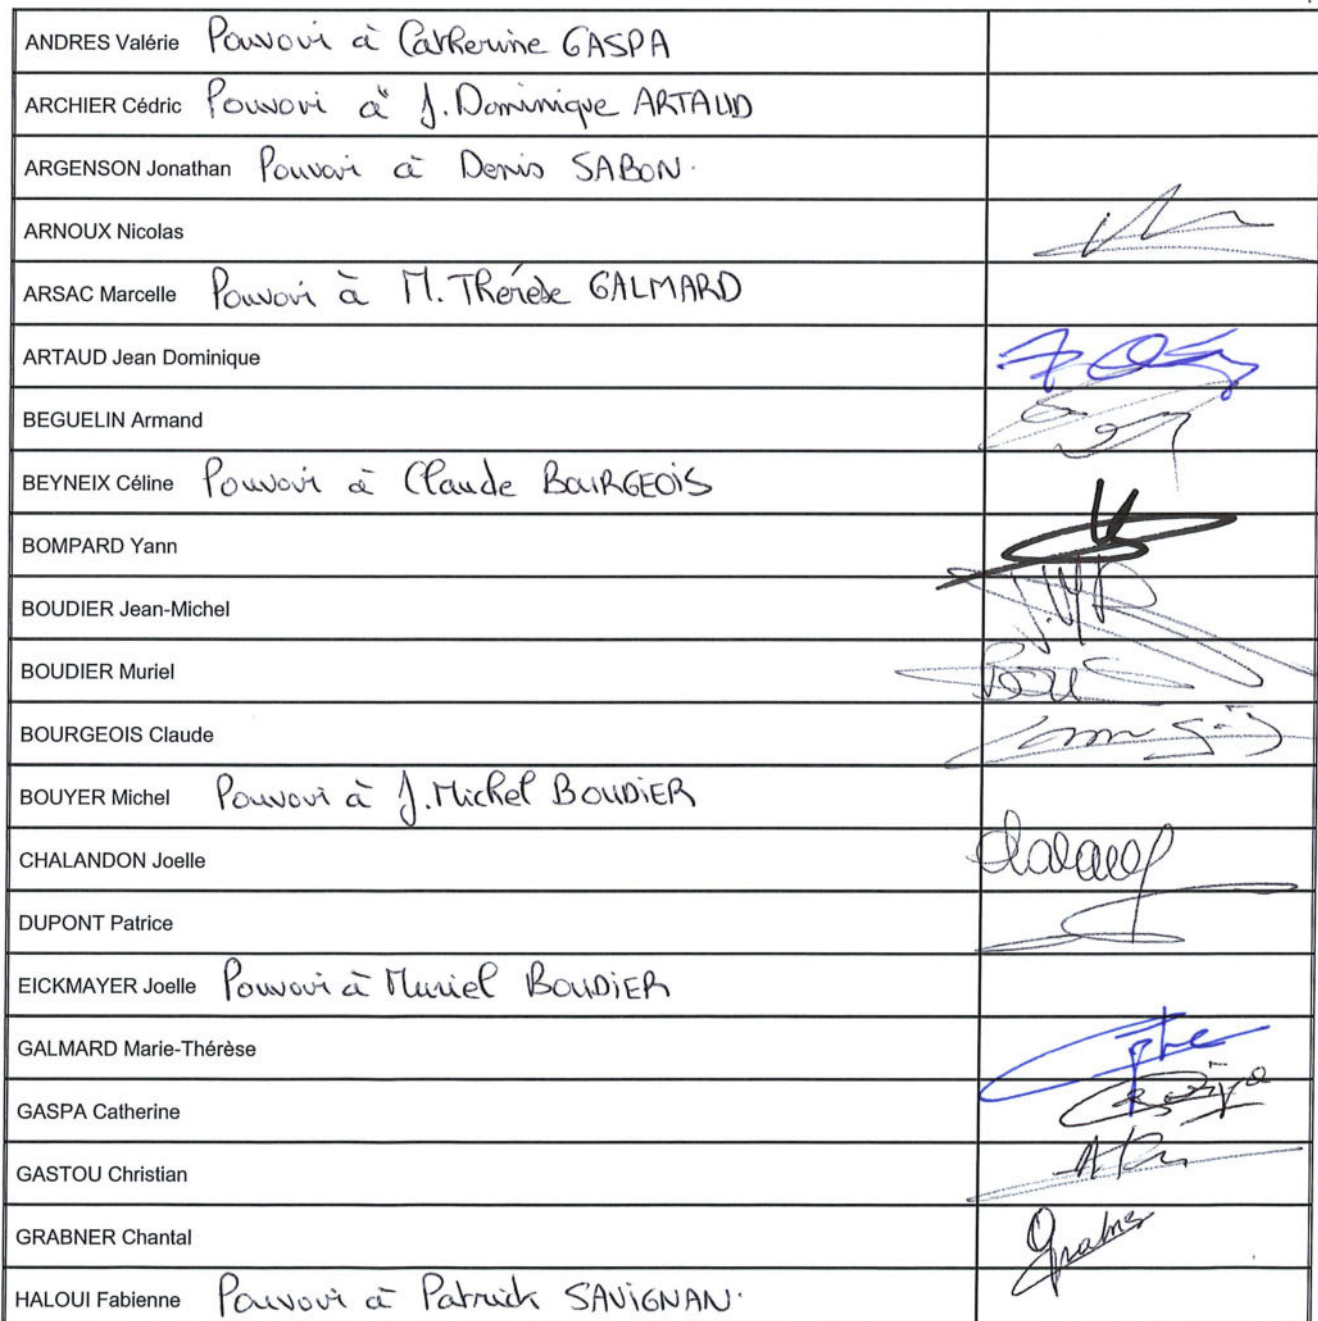 ANDRES Valérie Pouvoir à Catherine GASPA
ARCHIER Cédric Pouvoir à J. Dominique ARTAUD
ARGENSON Jonathan Pouvoir à Denis SABON.
ARNOUX Nicolas
ARSAC Marcelle Pouvoir à M. Thérèse GALMARD
ARTAUD Jean Dominique
BEGUELIN Armand
BEYNEIX Céline Pouvoir à Claude BOURGEOIS
BOMPARD Yann
BOUDIER Jean-Michel
BOUDIER Muriel
BOURGEOIS Claude
BOUYER Michel Pouvoir à J. Michel BOUDIER
CHALANDON Joelle
DUPONT Patrice
EICKMAYER Joelle Pouvoir à Muriel BOUDIER
GALMARD Marie-Thérèse
GASPA Catherine
GASTOU Christian
GRABNER Chantal
HALOUI Fabienne Pouvoir à Patrick SAVIGNAN.